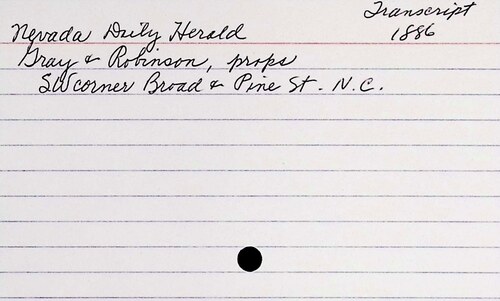 Transcript
1886
Nevada Daily Herald
Gray & Robinson, props
SW corner Broad & Pine St. N.C.